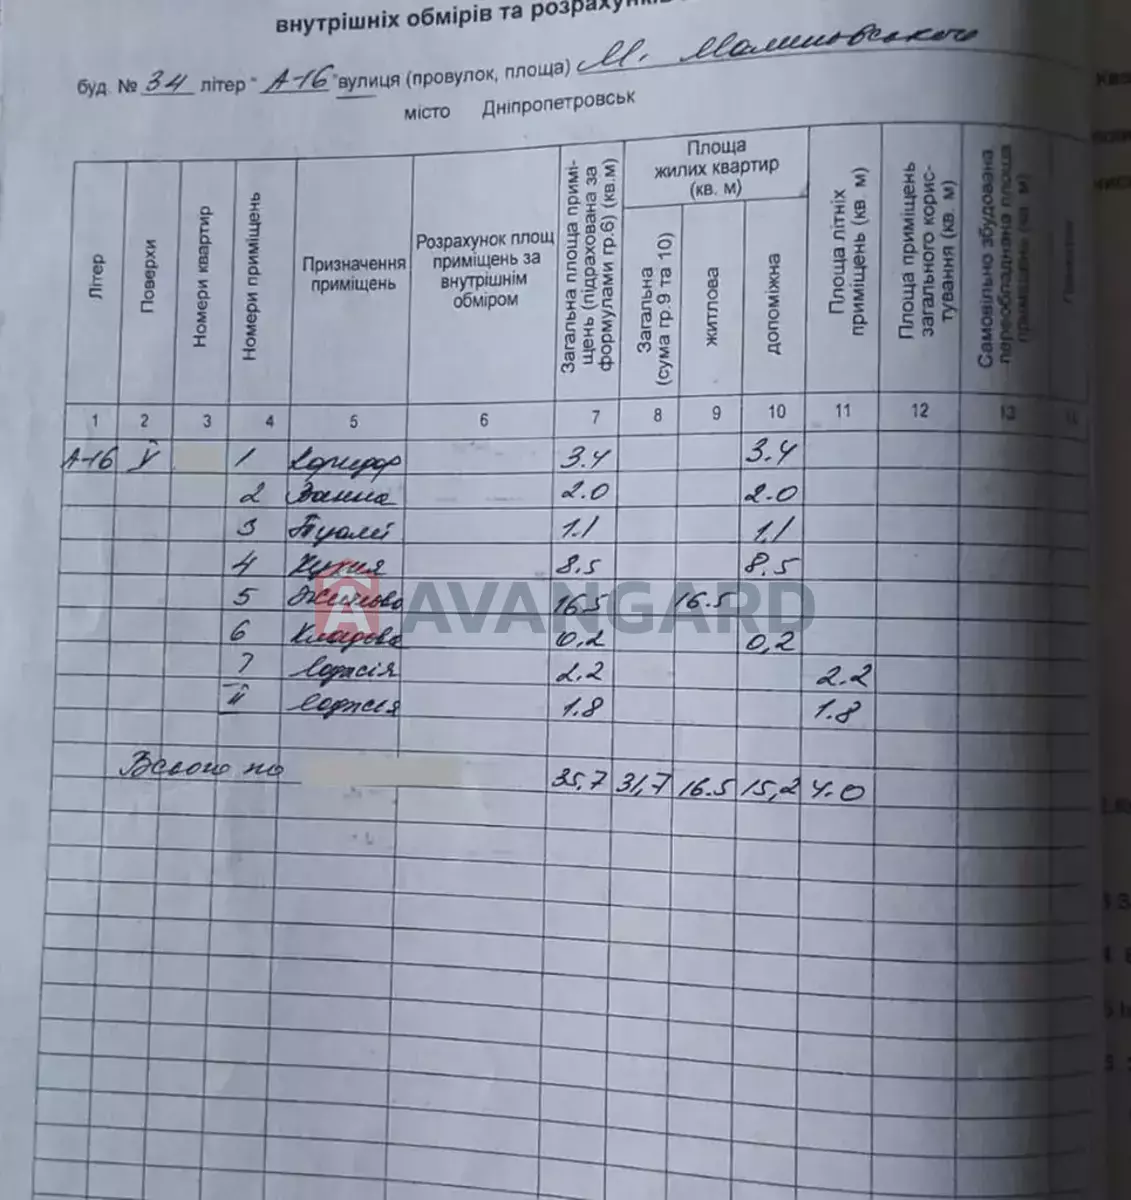 внутрішніх обмірів та розрахунків
буд. № 34 літер " А-16 " вулиця (провулок, площа) М. Малиновського
місто Дніпропетровськ
Літер
Поверхи
Номери квартир
Номери приміщень
Призначення приміщень
Розрахунок площ приміщень за внутрішнім обміром
Загальна площа приміщень (підрахована за формулами гр.6) (кв.м)
Площа жилих квартир (кв. м)
Загальна (сума гр.9 та 10)
житлова
допоміжна
Площа літніх приміщень (кв. м)
Площа приміщень загального користування (кв. м)
Самовільно збудована переобладнана площа приміщень (кв. м)
1 2 3 4 5 6 7 8 9 10 11 12 13 14
А-16 V 1 Коридор 3.4 3.4
2 Ванна 2.0 2.0
3 Туалет 1.1 1.1
4 Кухня 8.5 8.5
5 Житлова 16.5 16.5
6 Кладова 0,2 0,2
7 Лоджія 2.2 2.2
II Лоджія 1.8 1.8
Всього по 35,7 31,7 16.5 15,2 4.0
AVANGARD